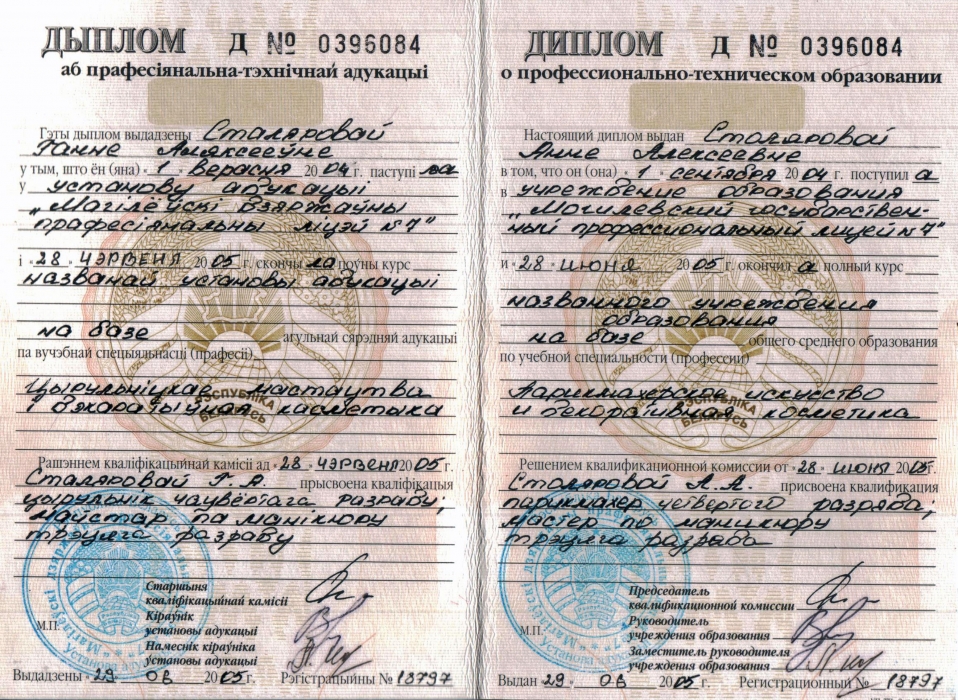 ДЫПЛОМ Д № 0396084
аб прафесіянальна-тэхнічнай адукацыі
Гэты дыплом выдадзены Сталяровай
Ганне Аляксееўне
у тым, што ён (яна) "1" верасня 2004 г. паступі ла
у установу адукацыі
"Магілёўскі дзяржаўны
прафесіянальны ліцэй №7"
і "28" чэрвеня 2005 г. скончы ла поўны курс
названай установы адукацыі
на базе агульнай сярэдняй адукацыі
па вучэбнай спецыяльнасці (прафесіі)
Цырульніцкае мастацтва
і дэкаратыўная касметыка
Рашэннем кваліфікацыйнай камісіі ад "28" чэрвеня 2005 г.
Сталяровай Г.А. прысвоена кваліфікацыя
цырульнік чацвёртага разраду;
майстар па манікюру
трэцяга разраду
Старшыня
кваліфікацыйнай камісіі
Кіраўнік
установы адукацыі
М.П.
Намеснік кіраўніка
установы адукацыі
Выдадзены "29" 06 2005 г. Рэгістрацыйны № 18797
ДИПЛОМ Д № 0396084
о профессионально-техническом образовании
Настоящий диплом выдан Столяровой
Анне Алексеевне
в том, что он (она) "1" сентября 2004 г. поступил а
в учреждение образования
"Могилевский государствен-
ный профессиональный лицей №7"
и "28" июня 2005 г. окончил а полный курс
названного учреждения
образования
на базе общего среднего образования
по учебной специальности (профессии)
Парикмахерское искусство
и декоративная косметика
РЭСПУБЛІКА
БЕЛАРУСЬ
Решением квалификационной комиссии от "28" июня 2005 г.
Столяровой А.А. присвоена квалификация
парикмахер четвертого разряда;
мастер по маникюру
трэцяга разрада
Председатель
квалификационной комиссии
Руководитель
учреждения образования
М.П.
Заместитель руководителя
учреждения образования
Выдан "29" 06 2005 г. Регистрационный № 18797